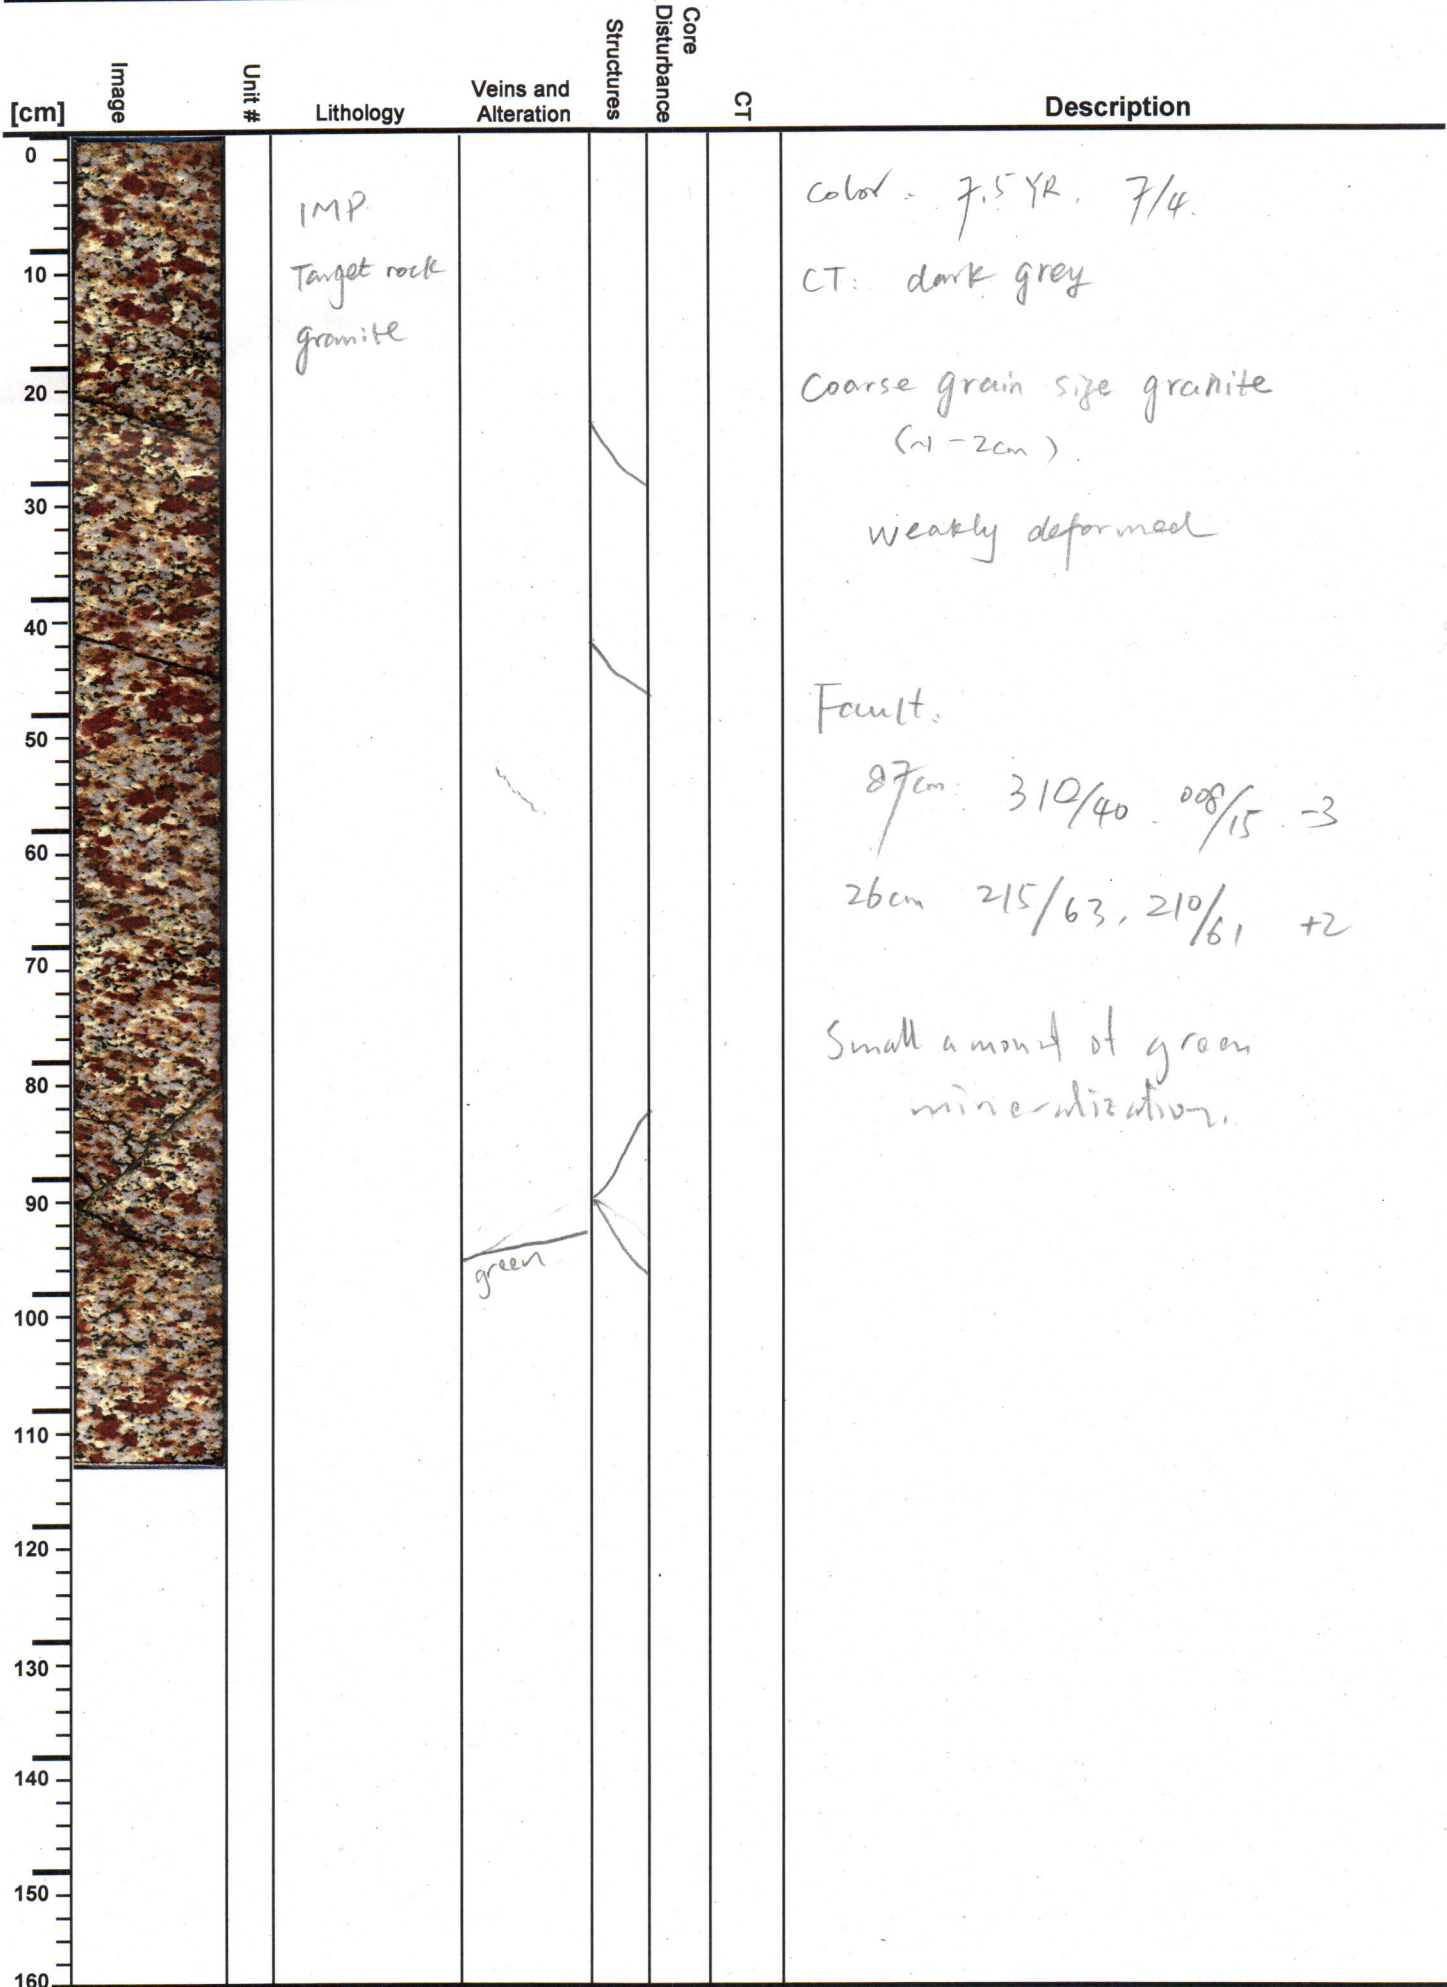 [cm]
Image
Unit #
Lithology
Veins and
Alteration
Structures
Core
Disturbance
CT
Description
0
10
20
30
40
50
60
70
80
90
100
110
120
130
140
150
160
IMP
Target rock
granite
green
Color. 7.5 YR. 7/4.
CT: dark grey
Coarse grain size granite
(~1-2cm).
weakly deformed
Fault:
87cm 310/40 . 008/15 . -3
26cm 215/63, 210/61 +2
Small amount of green
mineralization.